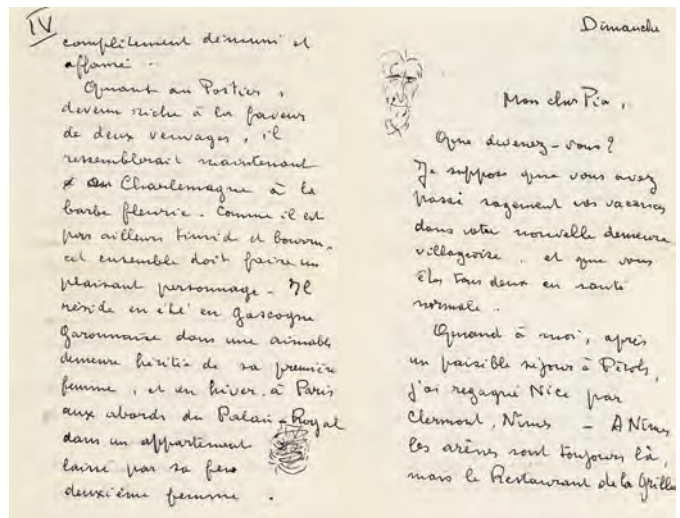 IV
complètement démuni et
affamé.
Quant au Postier,
devenu riche à la faveur
de deux veuvages, il
ressemblerait maintenant
à Charlemagne à la
barbe fleurie. Comme il est
par ailleurs timide et bourru,
cet ensemble doit faire un
plaisant personnage - Il
réside en été en Gascogne
Garonnaise dans une aimable
demeure héritée de sa première
femme, et en hiver à Paris
aux abords du Palais-Royal
dans un appartement
laissé par sa
deuxième femme.
Dimanche
Mon cher Pia,
Que devenez-vous?
Je suppose que vous avez
passé sagement vos vacances
dans votre nouvelle demeure
villageoise, et que vous
êtes tous deux en santé
normale.
Quand à moi, après
un paisible séjour à Pérols,
j'ai regagné Nice par
Clermont, Nîmes - A Nîmes
les arènes sont toujours là,
mais le Restaurant de la Grille